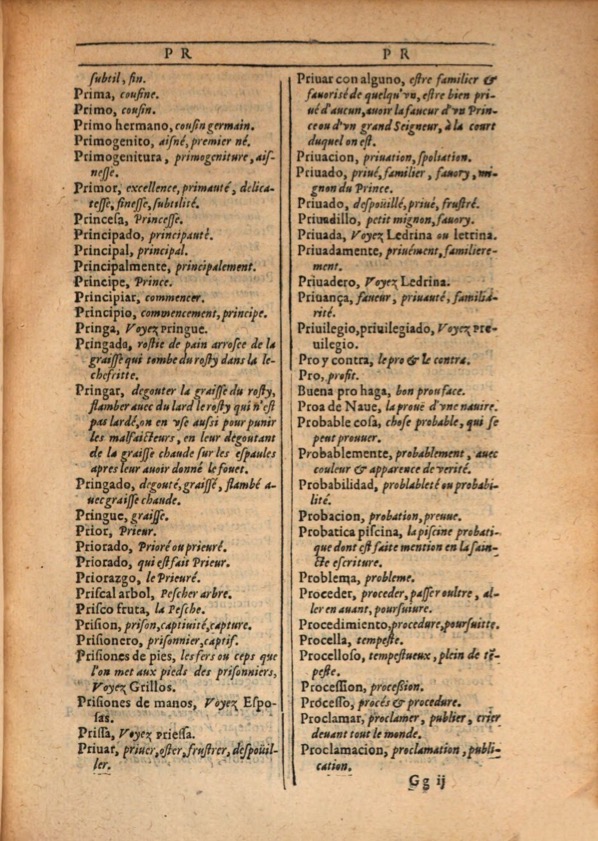 PR
PR
ſubtil, fin.
Prima, couſine.
Primo, couſin.
Primo hermano, couſin germain.
Primogenito, aiſné, premier né.
Primogenitura, primogeniture, aiſ-
neſſe.
Primor, excellence, primauté, delica-
teſſe, fineſſe, ſubtilité.
Princeſa, Princeſſe.
Principado, principauté.
Principal, principal.
Principalmente, principalement.
Principe, Prince.
Principiar, commencer.
Principio, commencement, principe.
Pringa, Voyez Pringue.
Pringado, roſtie de pain arroſee de la
graiſſe qui tombe du roſty dans la le-
chefritte.
Pringar, degouter la graiſſe du roſty,
flamber auec du lard le roſty qui n'eſt
pas lardé, on en vſe auſsi pour punir
les malfaicteurs, en leur degoutant
de la graiſſe chaude ſur les eſpaules
apres leur auoir donné le fouet.
Pringado, degouté, graiſſé, flambé a-
uec graiſſe chaude.
Pringue, graiſſe.
Prior, Prieur.
Priorado, Prioré ou prieuré.
Priorado, qui eſt fait Prieur.
Priorazgo, le Prieuré.
Priſcal arbol, Peſcher arbre.
Priſco fruta, la Peſche.
Priſion, priſon, captiuité, capture.
Priſionero, priſonnier, captif.
Priſiones de pies, les fers ou ceps que
l'on met aux pieds des priſonniers,
Voyez Grillos.
Priſiones de manos, Voyez Eſpo-
ſas.
Priſſa, Voyez Prieſſa.
Priuar, priuer, oſter, fruſtrer, deſpouil-
ler.
Priuar con alguno, eſtre familier &
fauoriſé de quelqu'vn, eſtre bien pri-
ué d'aucun, auoir la faueur d'vn Prin-
ce ou d'vn grand Seigneur, à la court
duquel on eſt.
Priuacion, priuation, ſpoliation.
Priuado, priué, familier, fauory, mi-
gnon du Prince.
Priuado, deſpouillé, priué, fruſtré.
Priuadillo, petit mignon, fauory.
Priuada, Voyez Ledrina ou letrina.
Priuadamente, priuément, familiere-
ment.
Priuadero, Voyez Ledrina.
Priuança, faueur, priuauté, familia-
rité.
Priuilegio, priuilegiado, Voyez Pre-
uilegio.
Pro y contra, le pro & le contra.
Pro, profit.
Buena pro haga, bon prouface.
Proa de Naue, la prouë d'vne nauire.
Probable coſa, choſe probable, qui ſe
peut prouuer.
Probablemente, probablement, auec
couleur & apparence de verité.
Probabilidad, problableté ou probabi-
lité.
Probacion, probation, preuue.
Probatica piſcina, la piſcine probati-
que dont eſt faite mention en la ſain-
cte eſcriture.
Problema, probleme.
Proceder, proceder, paſſer oultre, al-
ler en auant, pourſuiure.
Procedimiento, procedure, pourſuitte.
Procella, tempeſte.
Proceloſo, tempeſtueux, plein de tẽ-
peſte.
Proceſſion, proceſsion.
Proceſſo, procés & procedure.
Proclamar, proclamer, publier, crier
deuant tout le monde.
Proclamacion, proclamation, publi-
cation.
Gg ij